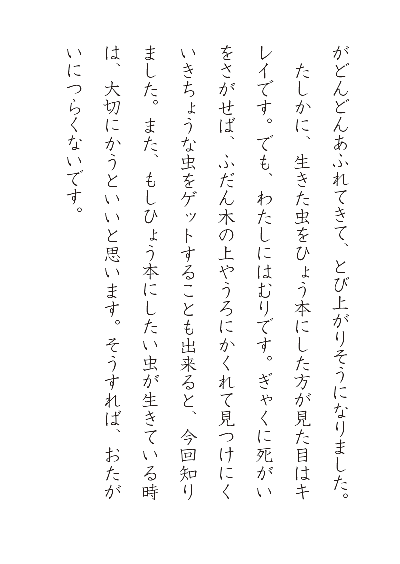 がどんどんあふれてきて、とび上がりそうになりました。
たしかに、生きた虫をひょう本にした方が見た目はキ
レイです。でも、わたしにはむりです。ぎゃくに死がい
をさがせば、ふだん木の上やうろにかくれて見つけにく
いきちょうな虫をゲットすることも出来ると、今回知り
ました。また、もしひょう本にしたい虫が生きている時
は、大切にかうといいと思います。そうすれば、おたが
いにつらくないです。